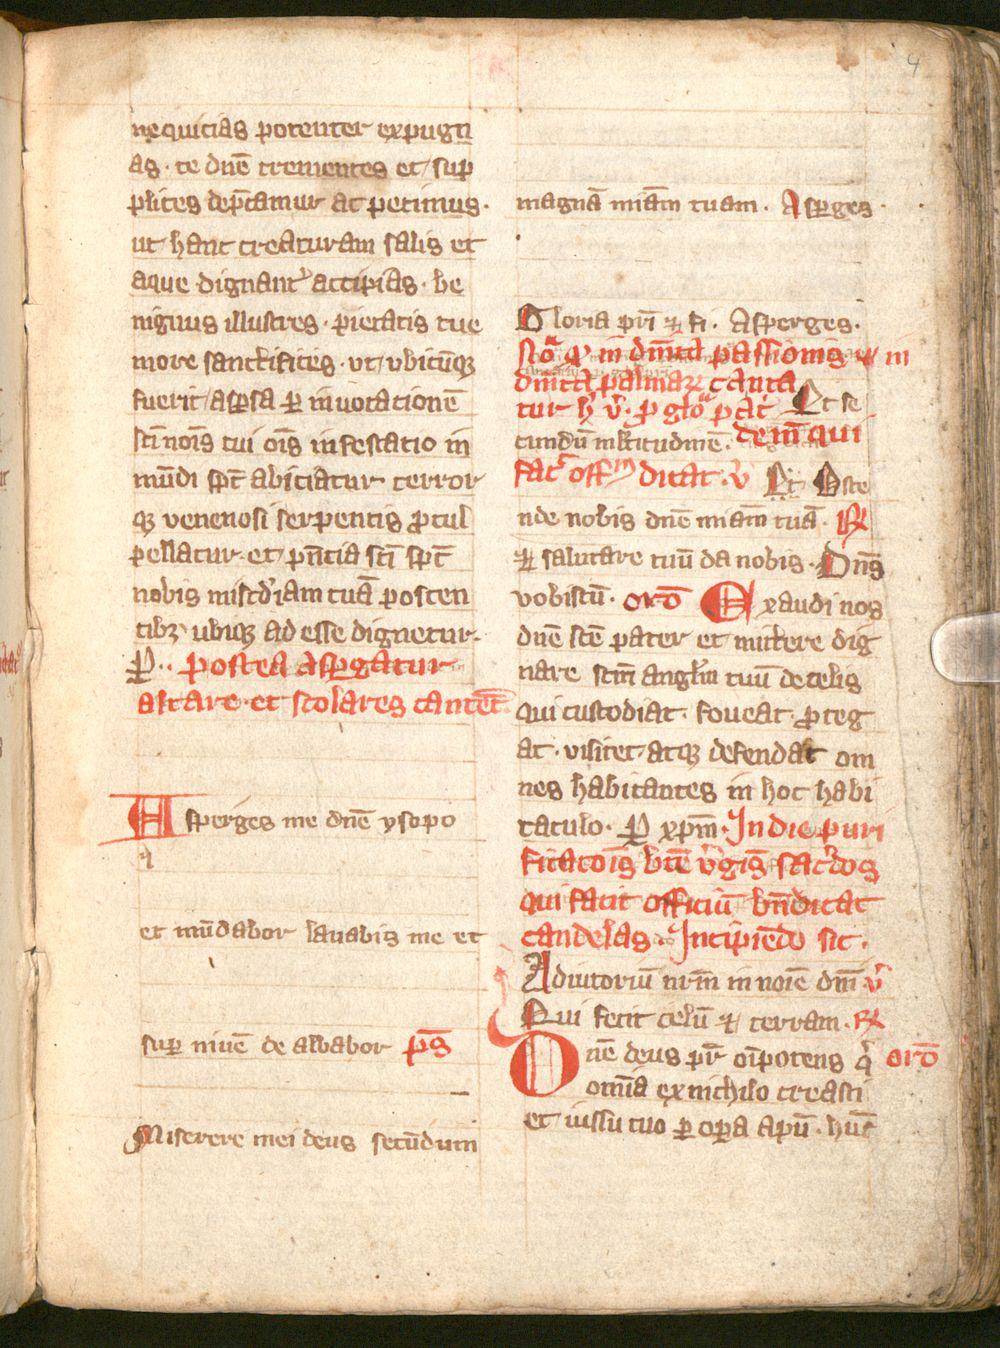 4
nequicias potenter expugn
as · te dnē trementes et sup
plices dep̄camur ac petimus ·
ut hanc creaturam salis et
aque dignant᷑ accipias · be
nignus illustres · pietatis tue
more sanctifices · vt vbicūqꝫ
fuerit aspsa ꝑ inuocationē
sc̄i nōis tui oīs infestatio in
mūdi sp̄c abiciatur terror
qꝫ venenosi serpentis ꝓcul
pellatur · et p̄ncia sc̄i sp̄c
nobis misc̄diam tuā poscen
tibꝫ ubiqꝫ ad esse dignetur ·
P̱ · · postea asꝑgatur
altare · et scolares cantēt
Asperges me dnē ysopo
et mūdabor lauabis me et
suꝑ niuē de albabor p̄s
Miserere mei deus secūdum
magnā miām tuam · Asꝑges ·
Gloria pr̄i ⁊ fi · Asperges ·
in dn̄ica passionis ⁊ in
dn̄ica palmaꝝ canta
tur h᷑ v᷑ · ꝓ glo᷑a pat᷑ Et se
cundū mltitudinē · demū qui
fac᷑ offm dicat · v᷑ Et Oste
nde nobis dnē miām tuā · ℟
⁊ salutare tuū da nobis · Dn̄s
vobiscū · orō Exaudi nos
dnē sc̄e pater et mittere dig
nare sc̄m anglm tuū de celis
qui custodiat · foueat · ꝓteg
at · visitet · atqꝫ defendat om
nes habitantes in hoc habi
taculo · P̱ xp̄m · In die puri
ficacōis bt̄e v᷑gīs sac᷑dos
qui facit officiū bn̄dicat
candelas · Incipiēdo sic ·
Adiutoriū nr̄m in noīe dn̄i v᷑
Qui fecit celū ⁊ terram · ℟
Dnē deus pr̄ oīpotens q̄ orō
omīa ex nichilo creasti
et iussu tuo ꝑ oꝑa apū · hūc